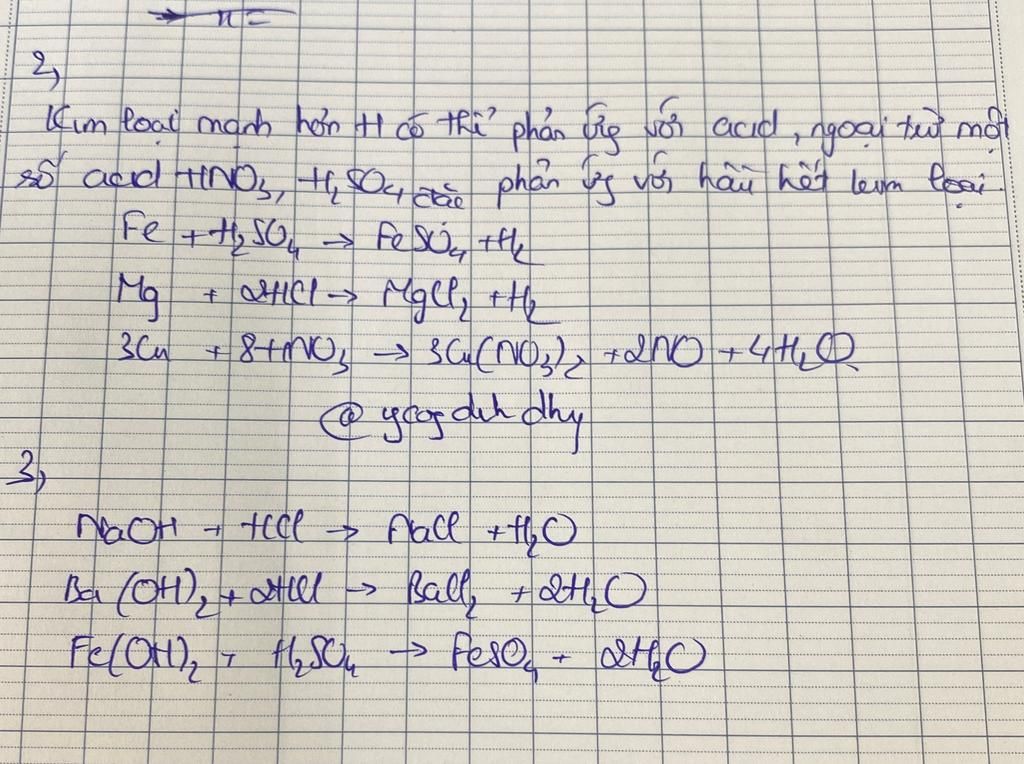 n =
2,
Kim loại mạnh hơn H có thể phản ứng với acid, ngoại trừ một
số acid HNO₃, H₂SO₄ đặc phản ứng với hầu hết kim loại.
Fe + H₂SO₄ → FeSO₄ + H₂
Mg + 2HCl → MgCl₂ + H₂
3Cu + 8HNO₃ → 3Cu(NO₃)₂ + 2NO + 4H₂O
@
3,
NaOH + HCl → NaCl + H₂O
Ba(OH)₂ + 2HCl → BaCl₂ + 2H₂O
Fe(OH)₂ + H₂SO₄ → FeSO₄ + 2H₂O